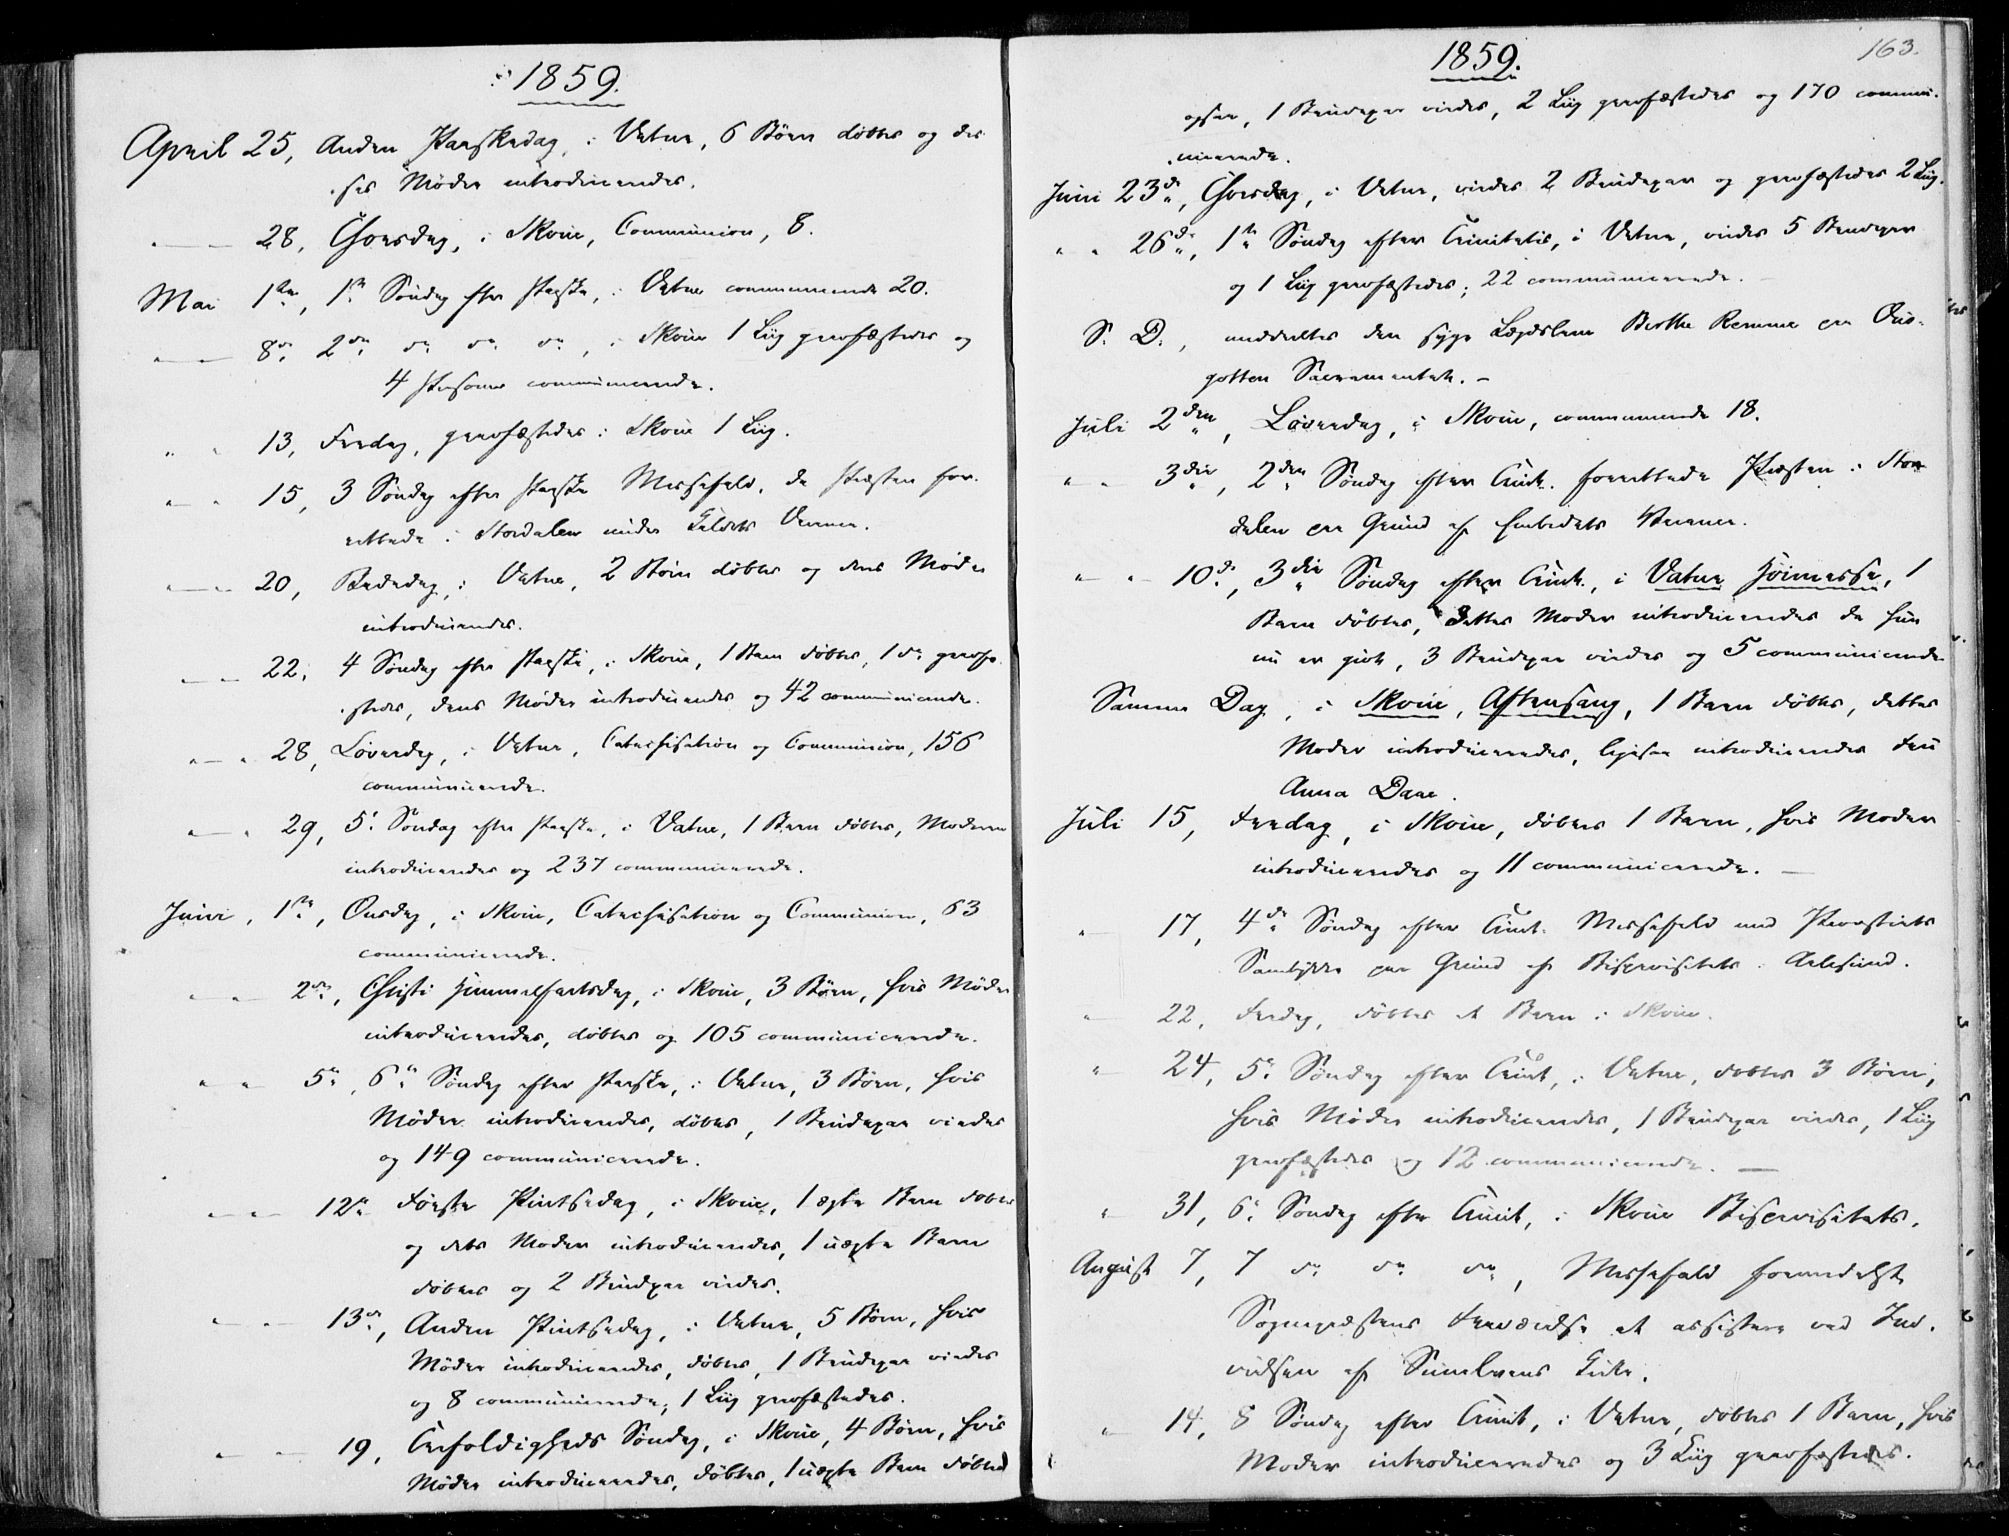 1859.
April 25, Anden Paaskedag, i Vatne, 6 Børn døbtes og dis
ses Mødre introduceredes.
" " 28, Thorsdag, i Skoue, Communion, 8.
Mai 1ste, 1ste Søndag efter Paaske, i Vatne communicerede 20.
" " 8de, 2den do do do, i Skoue 1 Liig gravfæstedes og
4 Personer communicerede.
" " 13, Fredag, gravfæstedes i Skoue 1 Liig.
" " 15, 3 Søndag efter Paaske Messefald, da Præsten for-
rettede i Stordalen under Kaldets Vacance.
" " 20, Bededag, i Vatne, 2 Børn døbtes og deres Mødre
introduceredes.
" " 22, 4 Søndag efter Paaske, i Skoue, 1 Barn døbtes, 1 do gravfæ-
stedes, dens Moder introduceredes og 42 communicerede.
" " 28, Løverdag, i Vatne, Catechisation og Communion, 156
communicerede.
" " 29, 5. Søndag efter Paaske, i Vatne, 1 Barn døbtes, Moderen
introduceredes og 237 communicerede.
Juni, 1ste, Onsdag, i Skoue, Catechisation og Communion, 63
communicerede.
" " 2den, Christi Himmelfartsdag, i Skoue, 3 Børn, hvis Mødre
introduceredes, døbtes og 105 communicerede.
" " 5te, 6te Søndag efter Paaske, i Vatne, 3 Børn, hvis
Mødre introduceredes, døbtes, 1 Brudepar viedes
og 149 communicerede.
" " 12te Første Pintsedag, i Skoue, 1 ægte Barn døbtes
og dets Moder introduceredes, 1 uægte Barn
døbtes og 2 Brudpar viedes.
" " 13de, Anden Pintsedag, i Vatne, 5 Børn, hvis
Mødre introduceredes, døbtes, 1 Brudepar viedes
og 8 communicerede; 1 Liig gravfæstedes.
" " 19, Trefoldigheds Søndag, i Skoue, 4 Børn, hvis
Mødre introduceredes, døbtes, 1 uægte Barn døbtes
163.
1859.
ogsaa, 1 Brudepar viedes, 2 Liig gravfæstedes og 170 commu-
nicerede.
Juni 23de, Thorsdag, i Vatne, viedes 2 Brudepar og gravfæstedes 2 Liig.
" " 26de, 1ste Søndag efter Trinitatis, i Vatne, viedes 5 Brudepar
og 1 Liig gravfæstedes; 22 communicerede.
S. D., meddeeltes den syge Lægdslem Berthe Remme paa
Sacramentet. -
Juli 2den, Løverdag, i Skoue, communicerede 18.
" " 3die, 2den Søndag efter Trinit. forrettede Præsten i Stor
dalen paa Grund af Embedets Vacance.
" " 10de, 3die Søndag efter Trinit., i Vatne Høimesse, 1
Barn døbtes, dettes Moder introduceredes da hun
nu er givt, 3 Brudepar viedes og 5 communicerede
Samme Dag, i Skoue, Aftensang, 1 Barn døbtes, dettes
Moder introduceredes, ligesaa introduceredes Fru
Anna Daae.
Juli 15, Fredag, i Skoue, døbtes 1 Barn, hvis Moder
introduceredes og 11 communicerede. -
" 17, 4de Søndag efter Trinit. Messefald med Provstiets
Samtykke paa Grund af Bispevisitats i Aalesund.
" 22, Fredag, døbtes et Barn i Skoue.
" 24, 5te Søndag efter Trinit, i Vatne, døbtes 3 Børn,
hvis Mødre introduceredes, 1 Brudepar viedes, 1 Liig
gravfæstedes og 12 communicerede. -
" 31, 6te Søndag efter Trinit, i Skoue Bispevisitats.
August 7, 7 do do do, Messefald formedelst
Sognepræstens Fraværelse at assistere ved Ind-
vielsen af Sunelvens Kirke.
" 14, 8 Søndag efter Trinit, i Vatne, døbtes 1 Barn, hvis
Moder introduceredes og 3 Liig gravfæstedes.